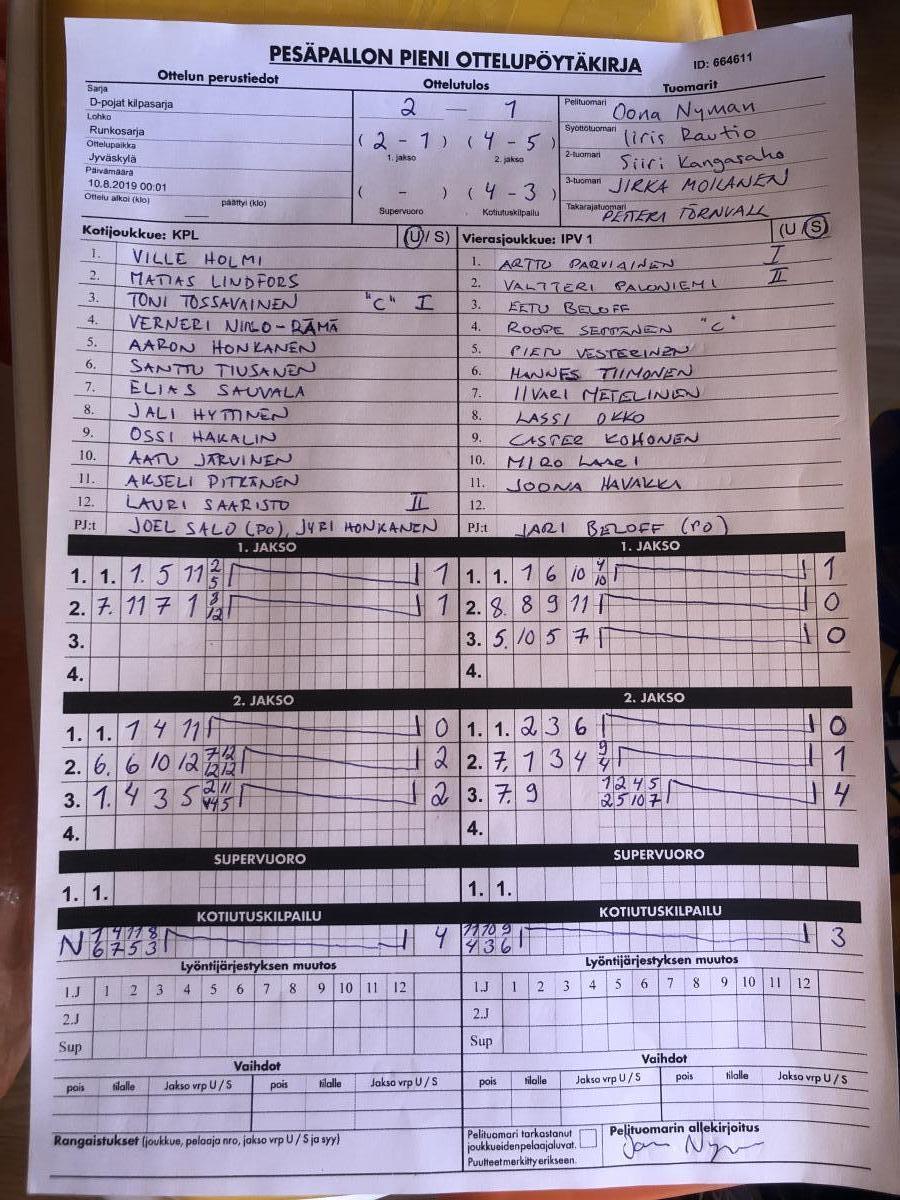 PESÄPALLON PIENI OTTELUPÖYTÄKIRJA ID: 664611
Ottelun perustiedot Ottelutulos Tuomarit
Sarja
D-pojat kilpasarja
Lohko
Runkosarja
Ottelupaikka
Jyväskylä
Päivämäärä
10.8.2019 00:01
Ottelu alkoi (klo) päättyi (klo)
2 - 1
(2 - 1) (4 - 5)
1. jakso 2. jakso
( - ) (4 - 3)
Supervuoro Kotiutuskilpailu
Pelituomari Oona Nyman
Syöttötuomari Iiris Rautio
2-tuomari Siiri Kangasaho
3-tuomari JIRKA MOILANEN
Takarajatuomari PETTERI TÖRNVALL
Kotijoukkue: KPL (U / S)
1. VILLE HOLMI
2. MATIAS LINDFORS
3. TONI TOSSAVAINEN "C" I
4. VERNERI NIILO-RÄMÄ
5. AARON HONKANEN
6. SANTTU TIUSANEN
7. ELIAS SAUVALA
8. JALI HYTTINEN
9. OSSI HAKALIN
10. AATU JÄRVINEN
11. AKSELI PITKÄNEN
12. LAURI SAARISTO II
PJ:t JOEL SALO (PO), JYRI HONKANEN
Vierasjoukkue: IPV 1 (U / S)
1. ARTTU PARVIAINEN I
2. VALTTERI PALONIEMI II
3. EETU BELOFF
4. ROOPE SEPPÄNEN "C"
5. PIETU VESTERINEN
6. HANNES TIIMONEN
7. IIVARI METELINEN
8. LASSI OKKO
9. CASPER KOHONEN
10. MIRO LAARI
11. JOONA HAVAKKA
12.
PJ:t JARI BELOFF (PO)
1. JAKSO
1. 1. 1. 5 11 2 5 1
2. 7. 11 7 1 8 12 1
3.
4.
1. JAKSO
1. 1. 1 6 10 4 10 1
2. 8. 8 9 11 0
3. 5. 10 5 7 0
4.
2. JAKSO
1. 1. 1 4 11 0
2. 6. 6 10 12 7 12 12 12 2
3. 1. 4 3 5 2 11 5 2
4.
2. JAKSO
1. 1. 2 3 6 0
2. 7. 1 3 4 9 4 1
3. 7. 9 1 2 4 5 2 5 10 7 4
4.
SUPERVUORO
1. 1.
SUPERVUORO
1. 1.
KOTIUTUSKILPAILU
N 1 4 11 8 4
6 7 5 3
KOTIUTUSKILPAILU
11 10 9 3
4 3 6
Lyöntijärjestyksen muutos
1.J 1 2 3 4 5 6 7 8 9 10 11 12
2.J
Sup
Lyöntijärjestyksen muutos
1.J 1 2 3 4 5 6 7 8 9 10 11 12
2.J
Sup
Vaihdot
pois tilalle Jakso vrp U / S pois tilalle Jakso vrp U / S
Vaihdot
pois tilalle Jakso vrp U / S pois tilalle Jakso vrp U / S
Rangaistukset (joukkue, pelaaja nro, jakso vrp U / S ja syy)
Pelituomari tarkastanut
joukkueidenpelaajaluvat.
Puutteetmerkittyerikseen.
Pelituomarin allekirjoitus